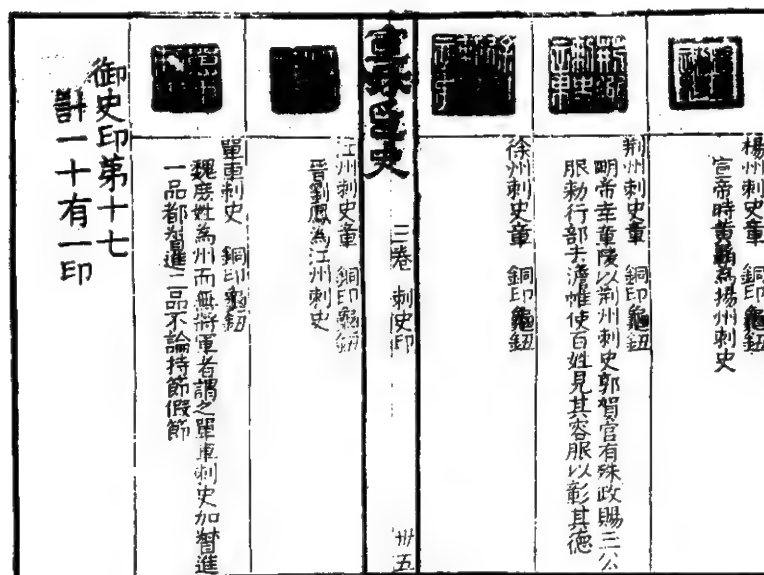 楊州刺史章　銅印龜鈕
宣帝時黃霸為揚州刺史
荆州刺史章　銅印龜鈕
明帝幸章陵以荆州刺史郭賀官有殊政賜三公
服勑行部去襜帷使百姓見其容服以彰其德
徐州刺史章　銅印龜鈕
宣和集古印史　三卷　刺史印　卅五
江州刺史章　銅印龜鈕
晉劉鳳為江州刺史
單車刺史　銅印龜鈕
魏庶姓為州而無將軍者謂之單車刺史加督進
一品都督進二品不論持節假節
御史印第十七
計一十有一印